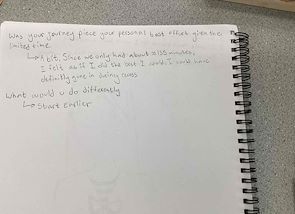 Was your journey piece your personal best effort given the
limited time.
↳ A bit, Since we only had about 155 minutes,
I felt as if I did the best I could. I could have
definitly gone in during class
What would u do differently
↳ Start earlier